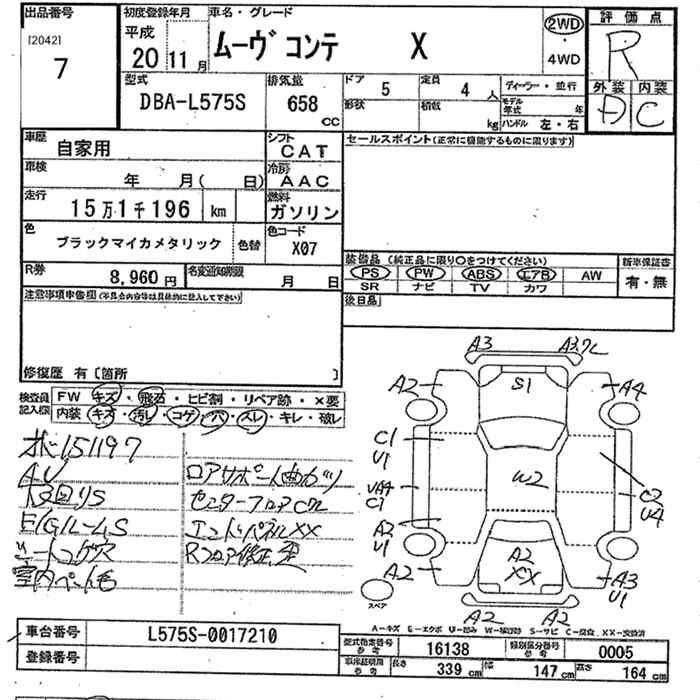 出品番号 初度登録年月 車名・グレード 評価点
[2042] 平成 2WD R
7 20 11月 ムーヴ コンテ X ・ 4WD
外装 内装
型式 排気量 ドア 5 定員 4人 ディーラー・並行 D C
DBA-L575S 658 CC 形状 積載 kg モデル年式 年
ハンドル 左・右
車歴 自家用 シフト CAT セールスポイント(正常に機能するものに限ります)
車検 年 月( 日) 冷房 AAC
走行 15万1千196 km 燃料 ガソリン
色 ブラックマイカメタリック 色替 色コード X07
装備品 (純正品に限り○をつけてください) 新車保証書
R券 8,960円 名変通知期限 月 日 PS PW ABS エアB AW 有・無
SR ナビ TV カワ
注意事項申告欄(不具合内容等は具体的に記入して下さい) 後日品
修復歴 有〔箇所 〕
検査員記入欄 FW キズ・飛石・ヒビ割・リペア跡・×要
内装 キズ・汚レ・コゲ・穴・スレ・キレ・破レ
151197
ロアサポート曲ガリ
AU センターフロアC
下回リS エンドパネルXX
E/GルームS Rフロア修正歪
シートコゲ穴
室内ペイ毛
A3 A3
A2 S1 A4
C1 U1
W2
C2 U4
C1
A2 U1
A2 A2 XX A3 U1
スペア A2 A2
A-キズ E-エクボ U-凹み W-補修跡 S-サビ C-腐食 XX-交換済
車台番号 L575S-0017210 型式指定番号 参考 16138 類別区分番号 参考 0005
登録番号 車庫証明用 参考 長さ 339 cm 幅 147 cm 高さ 164 cm